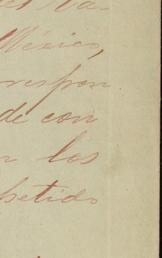 México,
respon
de con
los
petido